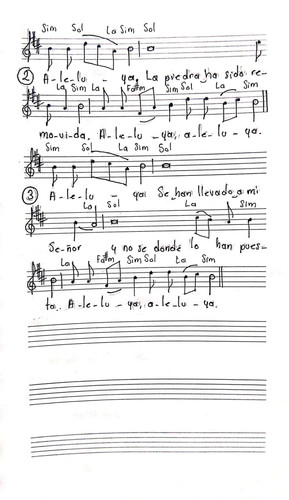 Sim Sol La Sim Sol
② A-le-lu - ya, La piedra ha sido re-
La Sim La Fa#m Sim Sol La Sim
mo-vida. A-le-lu-ya, a-le-lu-ya.
Sim Sol La Sim Sol
③ A-le-lu - ya Se han llevado a mi
La Sol La Sim
Se-ñor y no se donde lo han pues-
La Fa#m Sim Sol La Sim
to. A-le-lu-ya, a-le-lu-ya.